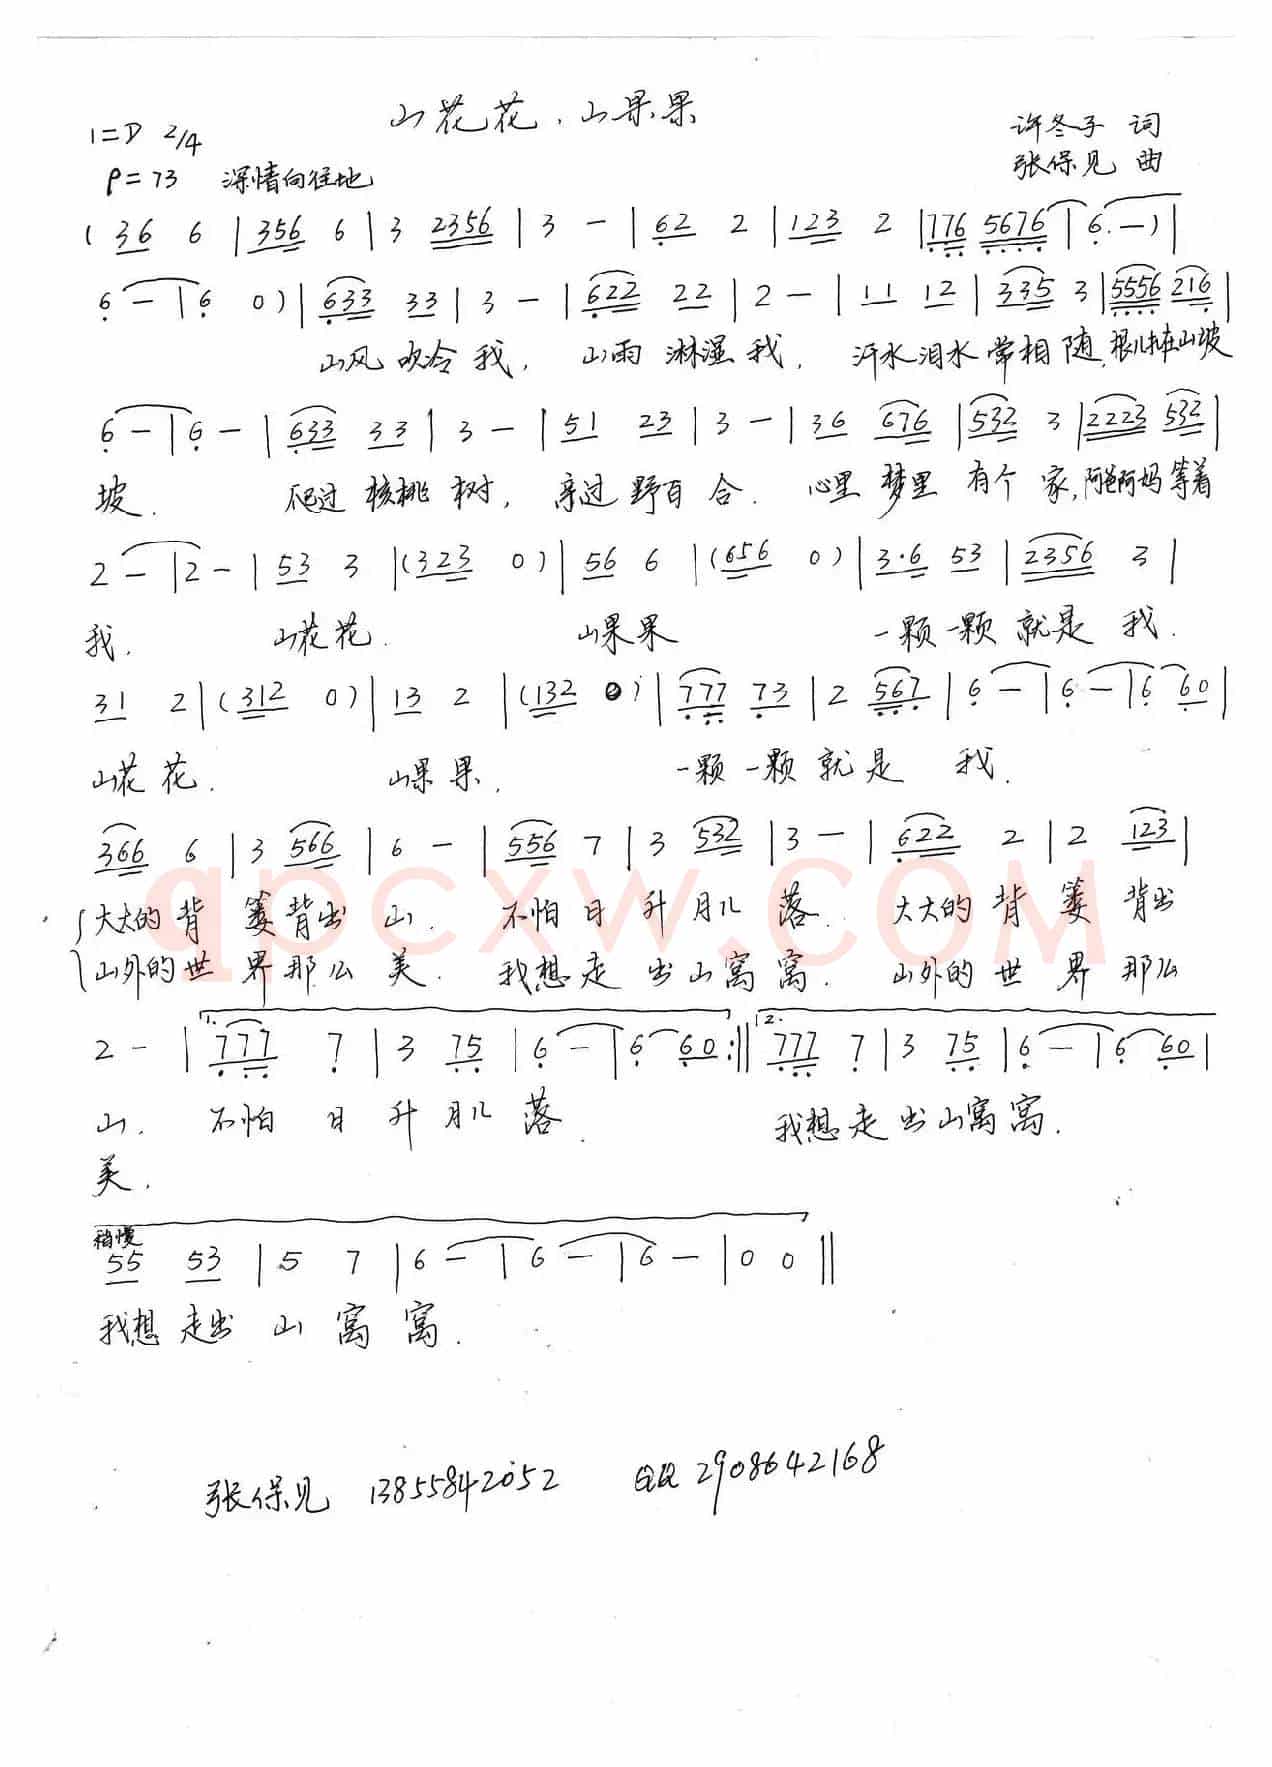 山花花、山果果
1=D 2/4
许冬子 词
张保见 曲
♩=73 深情向往地
( 36 6 | 356 6 | 3 2356 | 3 - | 62 2 | 123 2 | 776 5676 | 6 - ) |
6 - | 6 0 ) | 633 33 | 3 - | 622 22 | 2 - | 11 12 | 335 3 | 5556 216 |
山风 吹冷 我, 山雨 淋湿 我. 汗水 泪水 常相 随. 根儿扎在山坡
6 - | 6 - | 633 33 | 3 - | 51 23 | 3 - | 36 676 | 532 3 | 2223 532 |
坡. 爬过 核桃 树, 亲过 野百 合. 心里 梦里 有个 家, 阿爸阿妈 等着
2 - | 2 - | 53 3 | ( 323 0 ) | 56 6 | ( 656 0 ) | 3·6 53 | 2356 3 |
我. 山花 花. 山果 果 一颗 一颗 就是 我.
31 2 | ( 312 0 ) | 13 2 | ( 132 0 ) | 777 73 | 2 567 | 6 - | 6 - | 6 60 |
山花 花. 山果 果. 一颗 一颗 就是 我.
366 6 | 3 566 | 6 - | 556 7 | 3 532 | 3 - | 622 2 | 2 123 |
大大的 背 篓 背出 山. 不怕 日 升 月儿 落. 大大的 背 篓 背出
山外的 世 界 那么 美. 我想 走 出 山窝 窝. 山外的 世 界 那么
2 - | 1. 777 7 | 3 75 | 6 - | 6 60 :‖ 2. 777 7 | 3 75 | 6 - | 6 60 |
山. 不怕 日 升 月儿 落. 我想 走 出 山窝 窝.
美.
稍慢
55 53 | 5 7 | 6 - | 6 - | 6 - | 0 0 ‖
我想 走出 山 窝 窝.
张保见 13855842052 QQ 2908642168
qpcxw.com